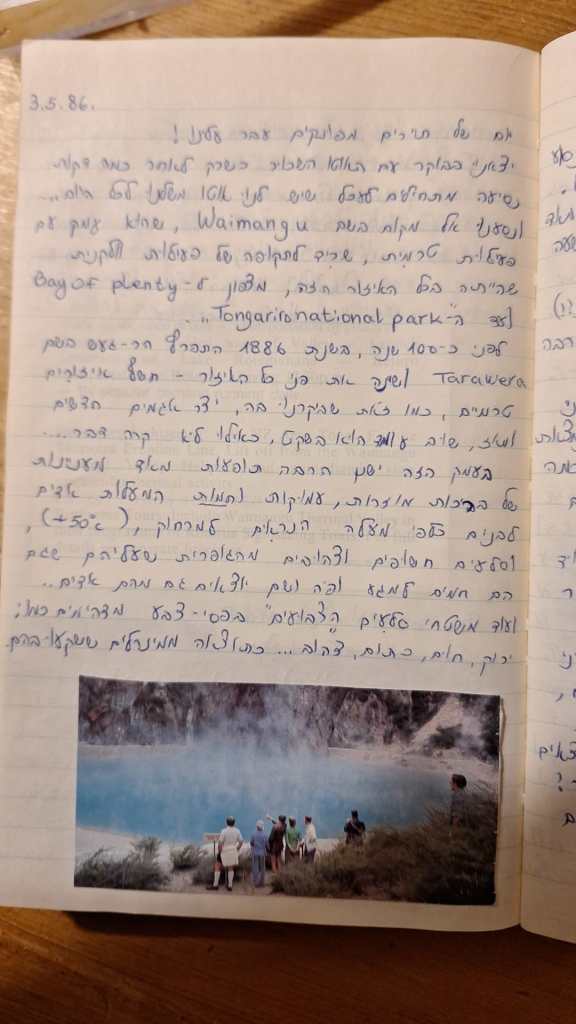 3.5.86.
יום של תיירים מפונקים עבר עלינו!
יצאנו בבוקר עם האוטו השכור כשרק לאחר כמה דקות
נסיעה מתחילים לעכל שיש לנו אוטו משלנו לכל היום...
ונסענו אל מקום בשם Waimangu, שהוא עמק עם
פעילות טרמית, שריד לתקופה של פעילות וולקנית
שהייתה בכל האיזור הזה, מצפון ל-Bay of plenty
ועד ה-"Tongariro national park"..
לפני כ-100 שנה, בשנת 1886 התפרץ הר-געש בשם
Tarawera ושינה את פני כל האיזור - חשף איזורים
טרמיים, כמו זאת שביקרנו בה, יצר אגמים חדשים
ומאז, שוב עומד הוא בשקט, כאילו לא קרה דבר....
בעמק הזה ישנן הרבה תופעות מאוד מעניינות
של בריכות מוזרות, עמוקות וחמות המעלות אדים
לבנים כלפי מעלה הנראים למרחוק, (+50°c),
וסלעים חשופים וצהובים מהגופרית שעליהם שגם
הם חמים למגע ופה ושם יוצאים גם מהם אדים..
ועוד משטחי סלעים "הצבועים" בפסי-צבע מדהימים כמו:
ירוק, חום, כתום, צהוב... כתוצאה ממינרלים ששקעו בהם.
נסע
מאוד
שעה
(!!)
הרבה